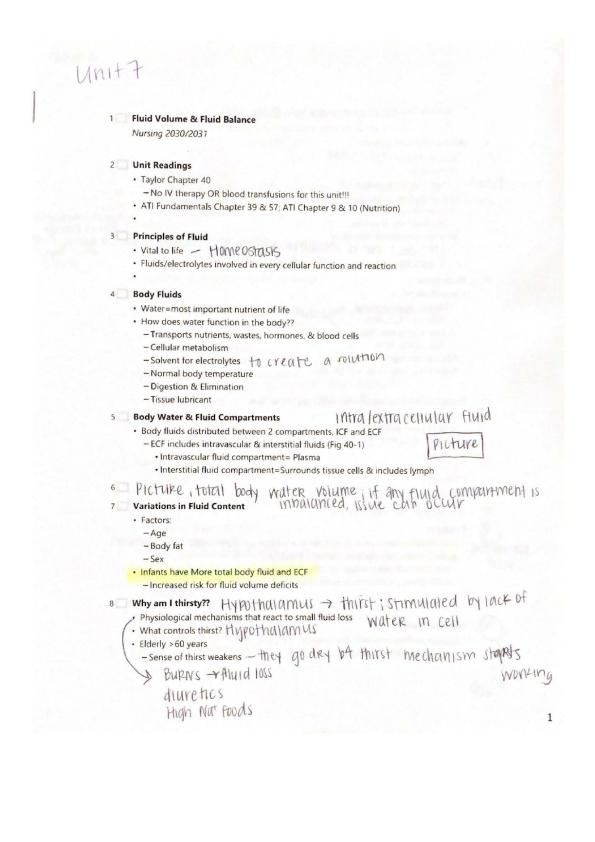 Unit 7
1 Fluid Volume & Fluid Balance
Nursing 2030/2031
2 Unit Readings
• Taylor Chapter 40
– No IV therapy OR blood transfusions for this unit!!!
• ATI Fundamentals Chapter 39 & 57; ATI Chapter 9 & 10 (Nutrition)
•
3 Principles of Fluid
• Vital to life – Homeostasis
• Fluids/electrolytes involved in every cellular function and reaction
•
4 Body Fluids
• Water=most important nutrient of life
• How does water function in the body??
– Transports nutrients, wastes, hormones, & blood cells
– Cellular metabolism
– Solvent for electrolytes to create a solution
– Normal body temperature
– Digestion & Elimination
– Tissue lubricant
5 Body Water & Fluid Compartments intra/extracellular fluid
• Body fluids distributed between 2 compartments, ICF and ECF
– ECF includes intravascular & interstitial fluids (Fig 40-1) Picture
• Intravascular fluid compartment= Plasma
• Interstitial fluid compartment=Surrounds tissue cells & includes lymph
6 Picture, total body water volume, if any fluid compartment is
imbalanced, issue can occur
7 Variations in Fluid Content
• Factors:
– Age
– Body fat
– Sex
• Infants have More total body fluid and ECF
– Increased risk for fluid volume deficits
8 Why am I thirsty?? Hypothalamus → thirst; stimulated by lack of
water in cell
• Physiological mechanisms that react to small fluid loss
• What controls thirst? Hypothalamus
• Elderly >60 years
– Sense of thirst weakens – they go dry b4 thirst mechanism starts
working
Burns → fluid loss
diuretics
High Na+ foods
1